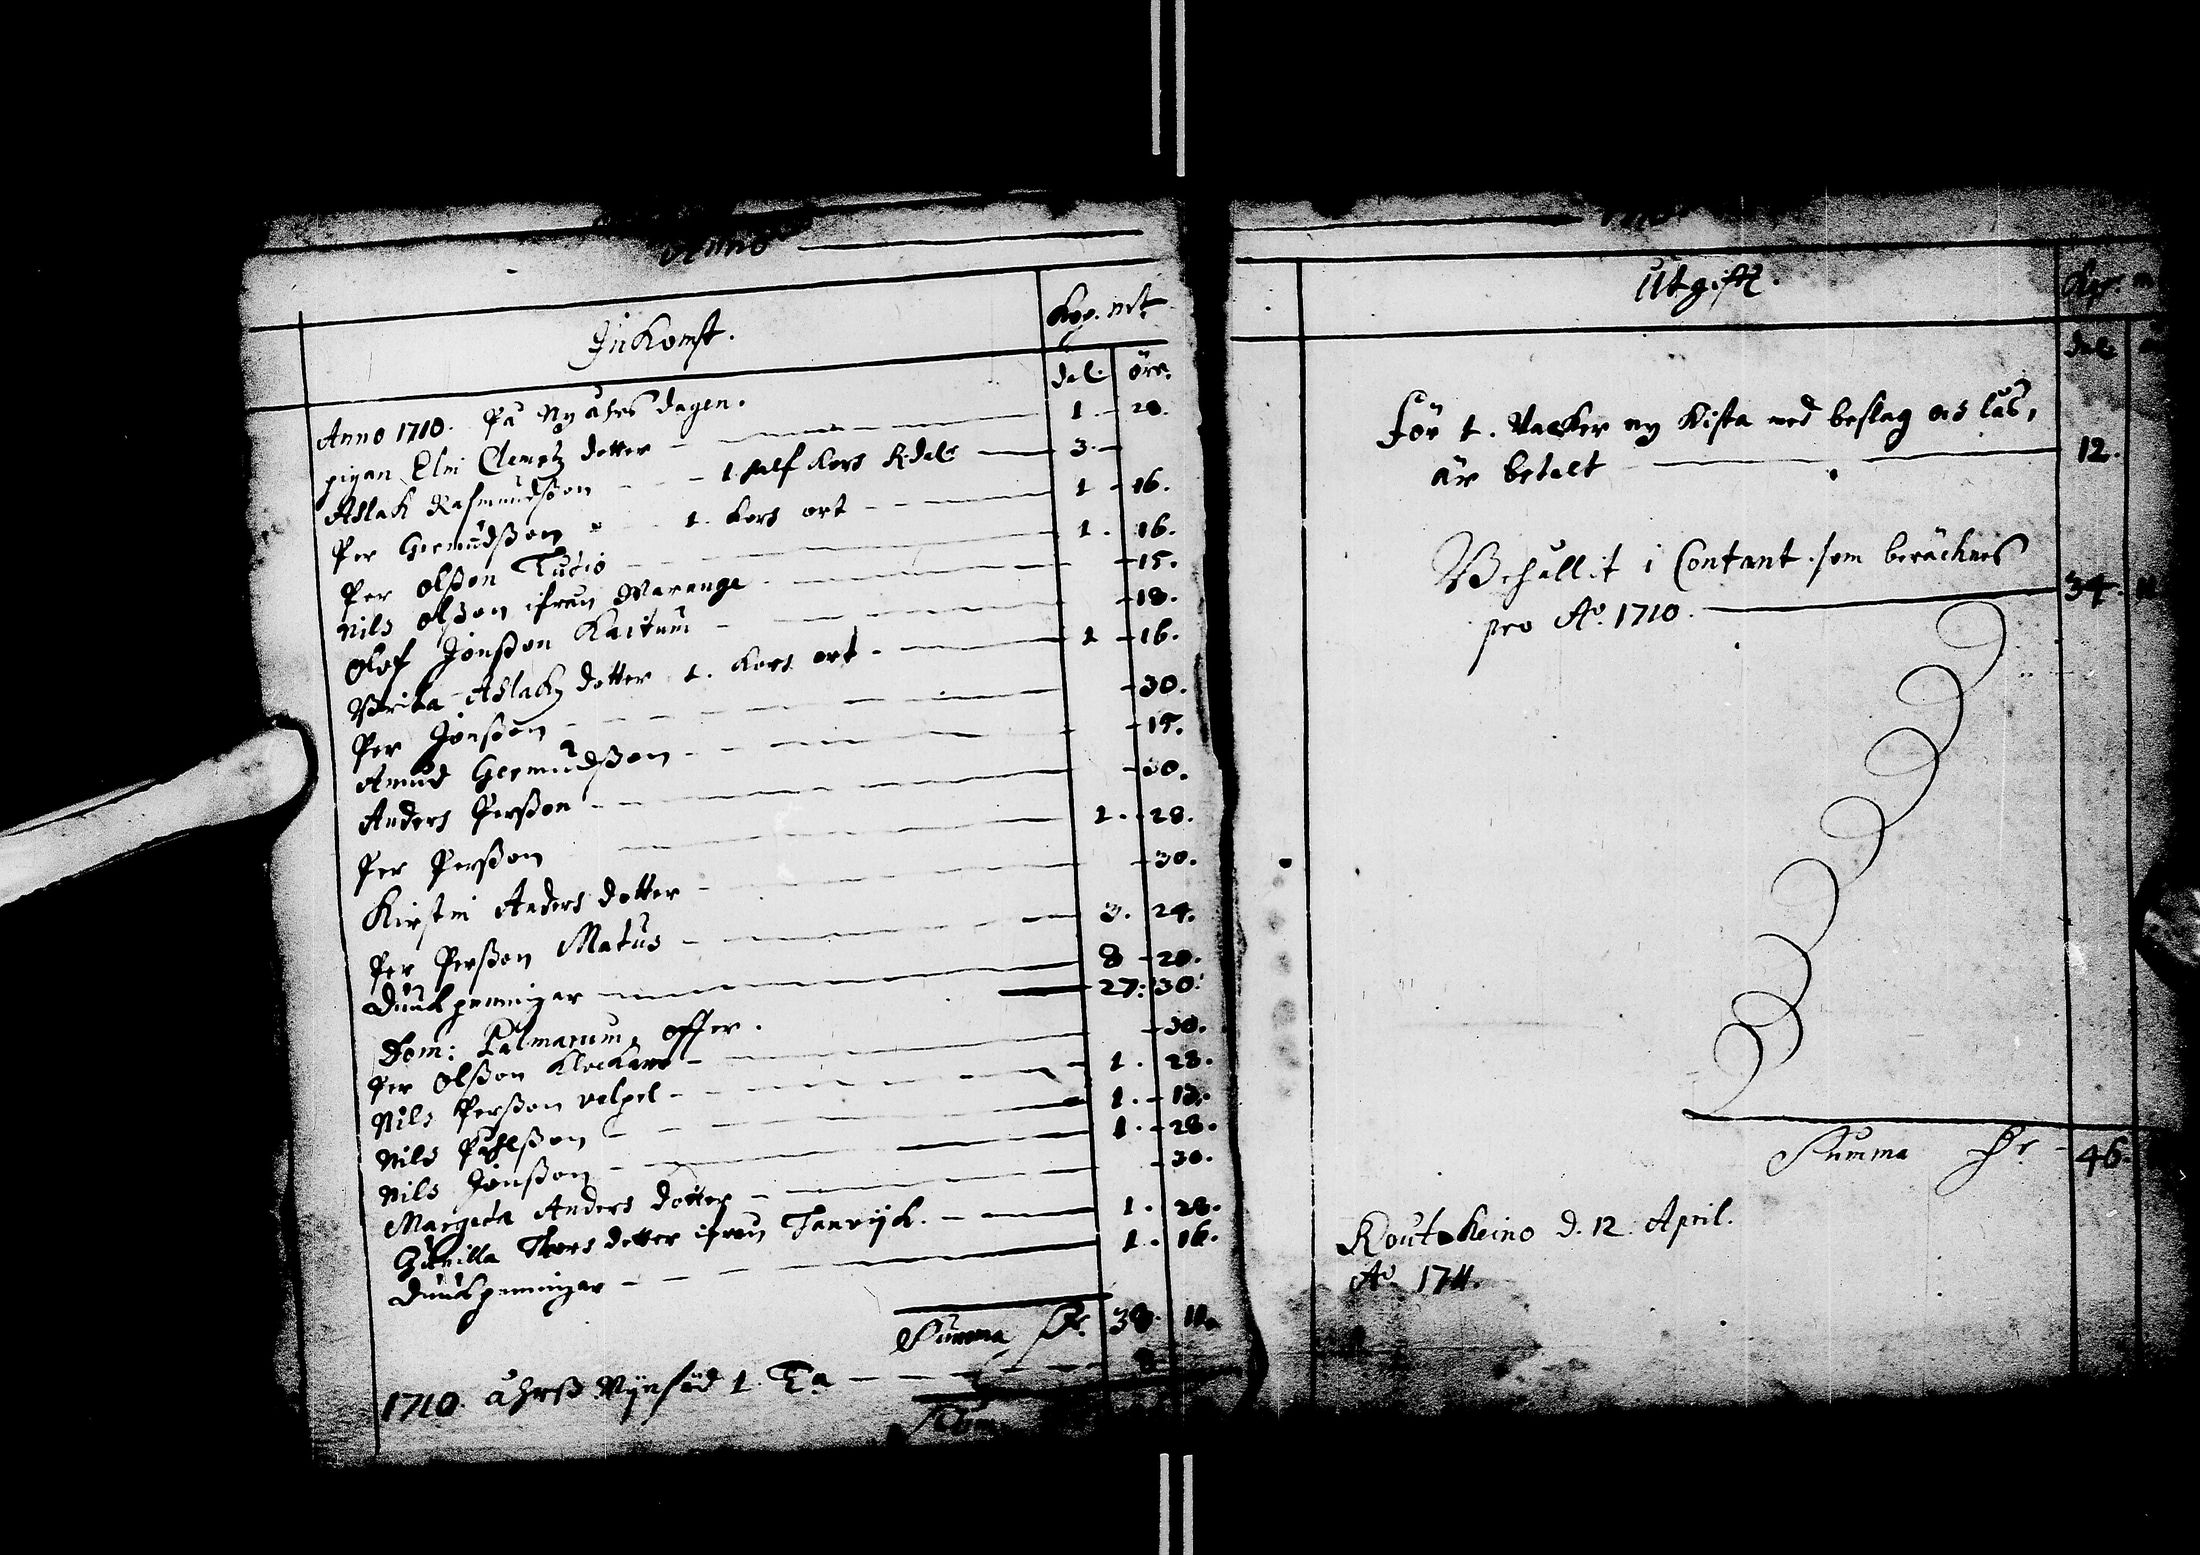 Anno
Inkomst. Kop. mt
dal: öre.
Anno 1710. På Nyåhrsdagen.
pigan Elin Clemetz dotter — 1 - 28.
Aslak Rasmundsson - - 1 half Kors Rdalr — 3. -
Per Germundsson - 1. Kors ort — 1 - 16.
Per Olsson Tudio — 1. 16.
Nils Olsson ifrån Warange — 15.
Olof Jonsson Kaitum — 18.
Brita Aslakz dotter 1. Kors ort — 1 - 16.
Per Jonsson — 30.
Amud Germundsson — 15.
Anders Persson — 30.
Per Persson — 1. - 28.
Kirstin Anders dotter — 30.
Per Persson Matus — 3. 24.
Duukpenningar — 8 - 20.
27: 30.
Dom: Palmarum, offer.
Per Olsson Klockare — 30.
Nils Persson velpel — 1. 28.
Nils Påhlsson — 1. - 12.
Nils Jonsson — 1. - 28.
Margeta Anders dotter — 30.
Gunilla Thors dotter ifrån Tenvijk. — 1. 28.
Duukpenningar — 1. 16.
Summa Sr. 38. 11.
1710. åhrss 1. Ta — 8
Sum
1710
Utgift. Kop. m
dal:
För 1. Vacker ny Kista med beslag och lås,
är betalt — 12.
Behållit i Contant som beräcknes
pro Ao. 1710. — 34. 11
Summa Sr. - 46.
Koutokeino d. 12. April.
Ao 1711.